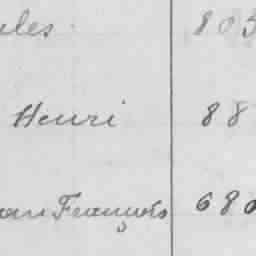 ules 805
Henri 88
an François 680